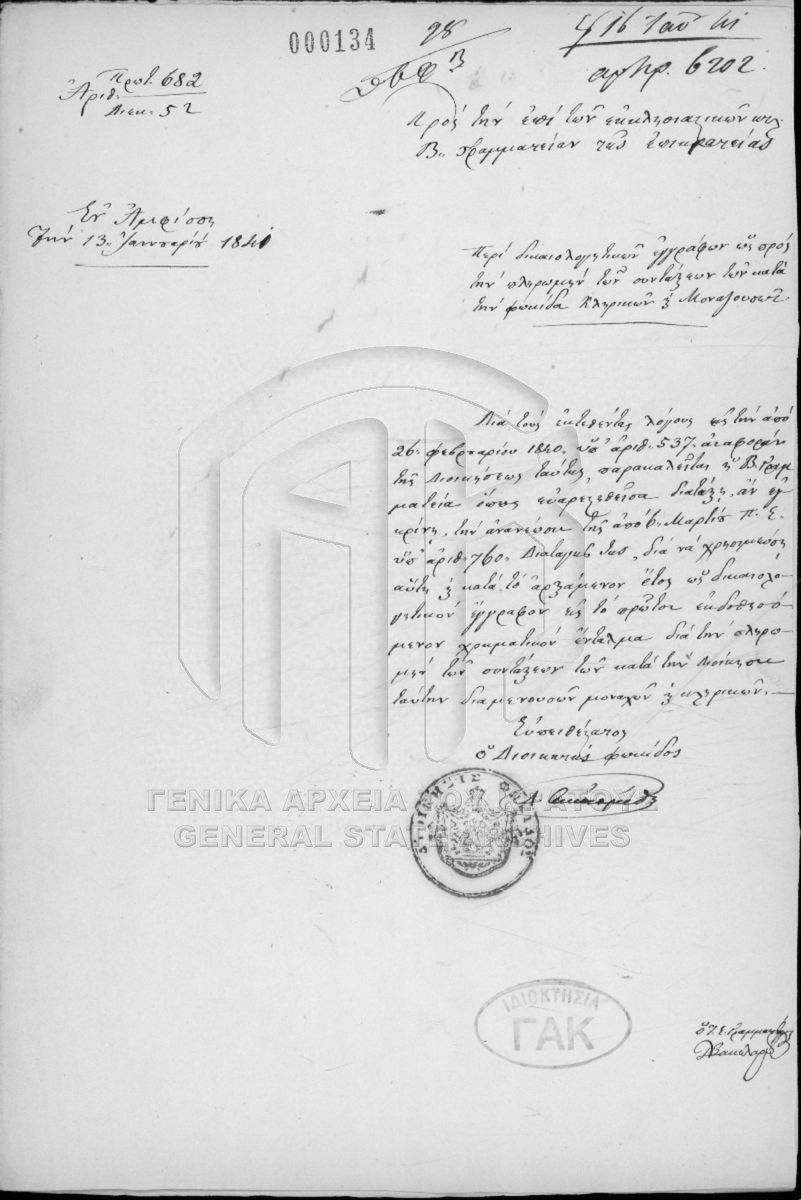 000134
98
16 Ιαν 41
αριθ. 6202.
Πρωτ. 682
Αριθ.
Διεκ. 52
Προς την επί των εκκλησιαστικών κτλ.
Β. Γραμματείαν της επικρατείας
Εν Αμφίσση
Την 13 Ιανουαρίου 1841
Περί δικαιολογητικών εγγράφων ως προς
την πληρωμήν των συντάξεων των κατά
την φωκίδα Κληρικών & Μοναζουσών
Διά τους εκτεθέντας λόγους εις την από
26 φεβρουαρίου 1840 υπ' αριθ. 537 αναφοράν
της Διοικήσεως ταύτης, παρακαλείται η Β. Γραμ
ματεία όπως ευαρεστηθείσα διατάξη, αν εγ
κρίνη, την ανανέωσιν της από 6 Μαρτίου Π. Ε.
υπ' αριθ. 760 Διαταγής της, διά να χρησιμεύση
αύτη & κατά το αρξάμενον έτος ως δικαιολο
γητικόν έγγραφον εις το πρώτον εκδοθησό
μενον χρηματικόν ένταλμα διά την πληρω
μήν των συντάξεων των κατά την Διοίκησιν
ταύτην διαμενουσών μοναχών & κληρικών.
Ευπειθέστατος
ο Διοικητής φωκίδος
ΔΙΟΙΚΗΣΙΣ ΦΩΚΙΔΟΣ
ΓΕΝΙΚΑ ΑΡΧΕΙΑ ΤΟΥ ΚΡΑΤΟΥΣ
GENERAL STATE ARCHIVES
ΙΔΙΟΚΤΗΣΙΑ
ΓΑΚ
ο Γραμματεύς